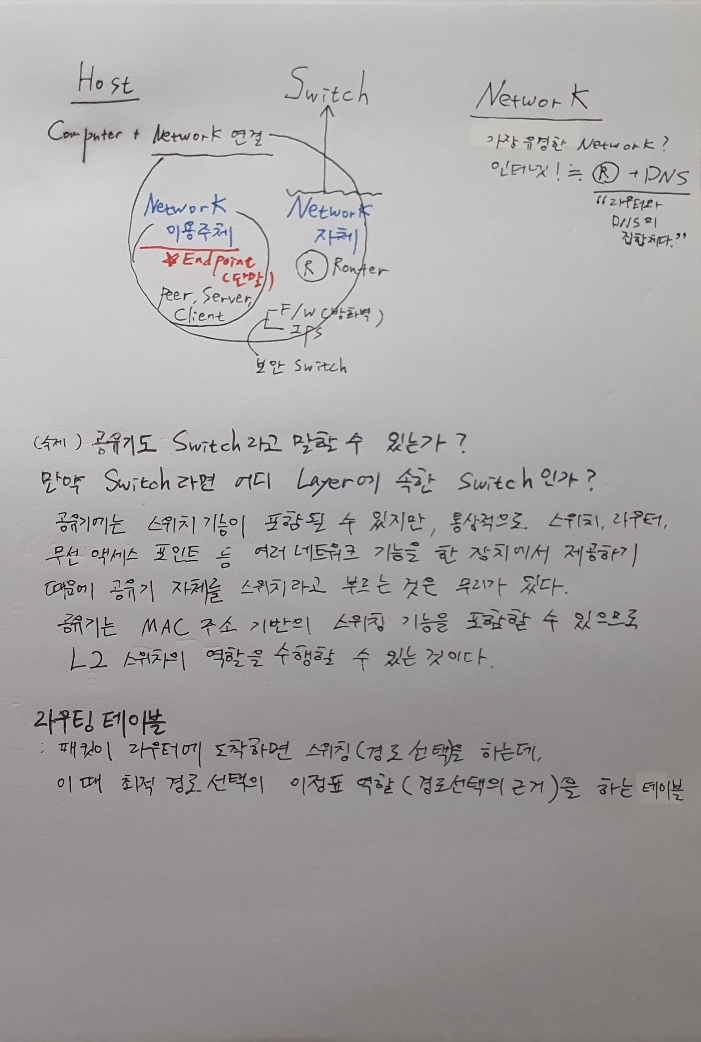 Host
Computer + Network 연결
Network
이용주체
*Endpoint
(단말)
Peer, Server,
Client
Switch
Network
자체
R Router
F/W (방화벽)
IPS
보안 Switch
Network
가장 유명한 Network?
인터넷! ≒ R + DNS
"라우터와
DNS의
집합체다."
(숙제) 공유기도 Switch라고 말할 수 있는가?
만약 Switch라면 어디 Layer에 속한 Switch인가?
공유기에는 스위치 기능이 포함될 수 있지만, 통상적으로 스위치, 라우터,
무선 액세스 포인트 등 여러 네트워크 기능을 한 장치에서 제공하기
때문에 공유기 자체를 스위치라고 부르는 것은 무리가 있다.
공유기는 MAC 주소 기반의 스위칭 기능을 포함할 수 있으므로
L2 스위치의 역할을 수행할 수 있는 것이다.
라우팅 테이블
: 패킷이 라우터에 도착하면 스위칭(경로 선택)을 하는데,
이 때 최적 경로 선택의 이정표 역할(경로선택의 근거)을 하는 테이블